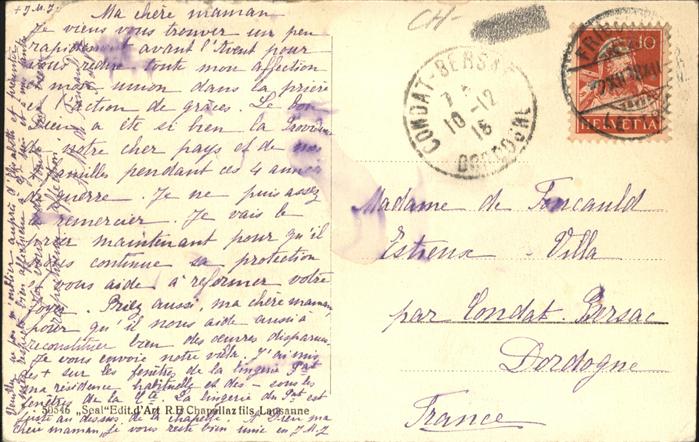 + J. M. J.
Ma chère maman
Je viens vous trouver un peu
rapidement avant l'Avent pour
vous redire toute mon affection
et mon union dans la prière
et l'action de grâces. Le bon
Dieu a été si bien la Providence
de notre cher pays et de nos
familles pendant ces 4 années
guerre. Je ne puis assez
remercier. Je vais le
prier maintenant pour qu'il
nous continue sa protection
vous aide à reformer votre
foyer. Priez aussi, ma chère maman,
pour qu'il nous aide aussi à
reconstituer bien des œuvres disparues.
Je vous envoie notre villa. J'ai mis
des + sur les fenêtres de la lingerie
ma résidence habituelle et des – sous les
fenêtres de la La lingerie du est
juste au dessus de la chapelle. A Dieu ma
chère maman, je vous reste bien unie en J. M. J.
50546 „Seal“ Edit. d'Art R.E Chapallaz fils, Lausanne
CH-
CONDAT-BERSAC
10-12
DORDOGNE
FRIBOURG
10
HELVETIA
Madame de Foucauld
Estreux - Villa
par Condat-Bersac
Dordogne
France